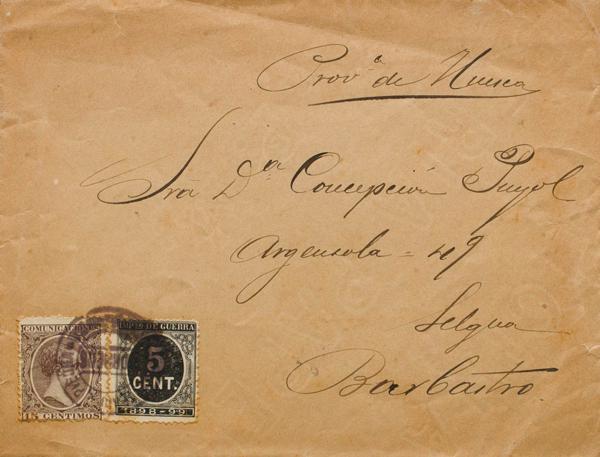 Provª de Huesca
Sra Dª Concepción Puyol
Argensola = 49
Selgua
Barbastro
COMUNICACIONES
15 CENTIMOS
IMPTO DE GUERRA
5
CENT.
1898-99